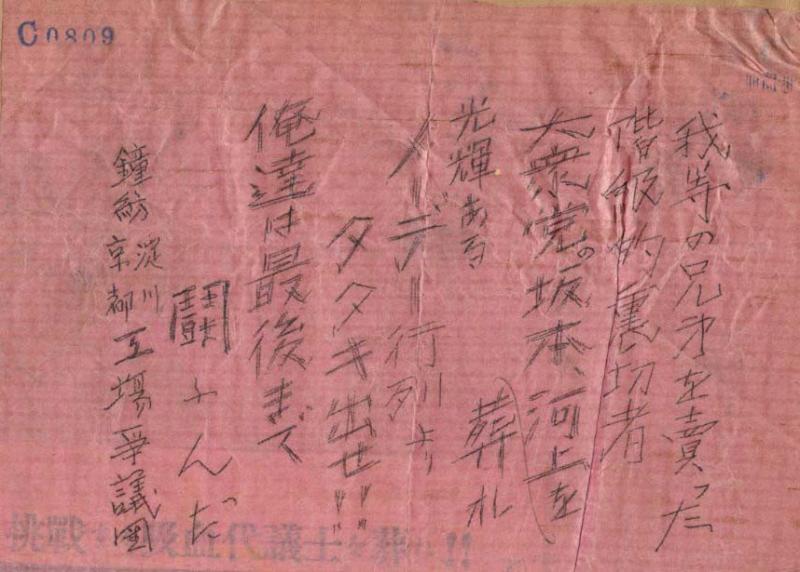 C0809
我等の兄弟を賣った
階級的裏切者
大衆党の坂本、河上を
葬れ
光輝ある
メーデー行列より
タタキ出せ!!
俺達は最後まで
闘ふんだ
鐘紡 淀川 京都 工場爭議団
挑戰 吸血代議士を葬れ!!